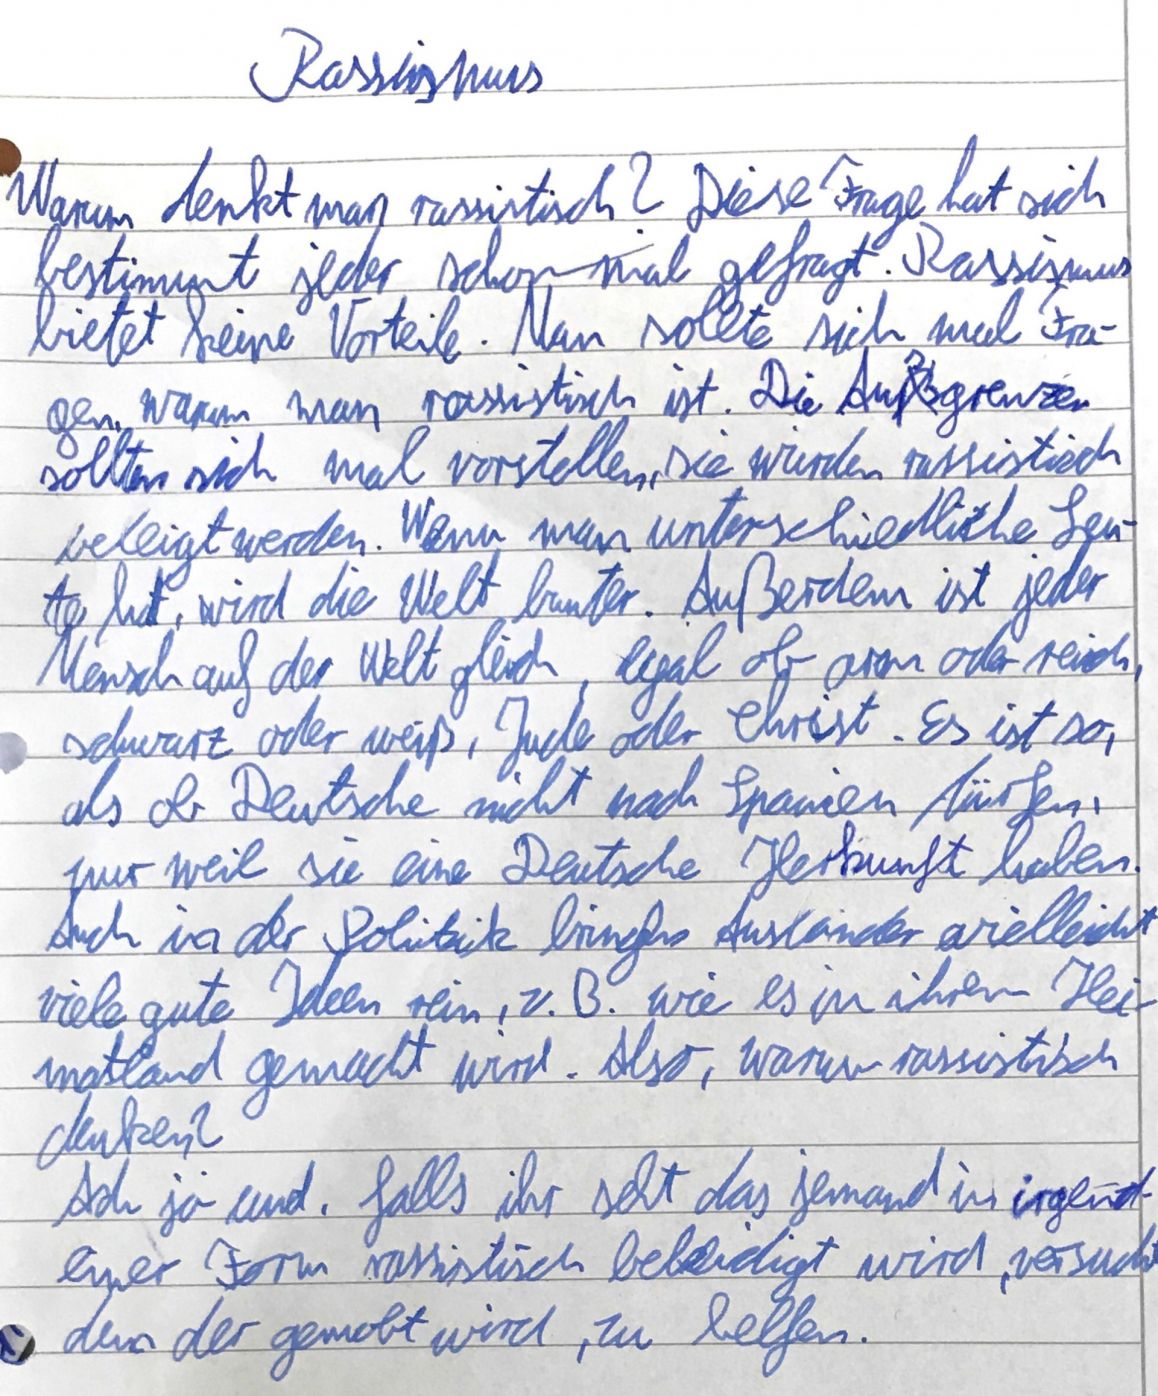 Rassismus
Warum denkt man rassistisch? Diese Frage hat sich
bestimmt jeder schon mal gefragt. Rassismus
bietet keine Vorteile. Man sollte sich mal Fra-
gen, warum man rassistisch ist. Die
sollten sich mal vorstellen, sie würden rassistisch
beleigt werden. Wenn man unterschiedliche Leu-
te hat, wird die Welt bunter. Außerdem ist jeder
Mensch auf der Welt gleich, egal ob arm oder reich,
schwarz oder weiß, Jude oder Christ. Es ist so,
als ob Deutsche nicht nach Spanien dürfen,
nur weil sie eine Deutsche Herkunft haben.
Auch in der Politik bringen Ausländer vielleicht
viele gute Ideen rein, z. B. wie es in ihrem Hei-
matland gemacht wird. Also, warum rassistisch
denken?
Ach ja und, falls ihr seht das jemand in irgend-
einer Form rassistisch beleidigt wird, versucht
dem der gemobt wird, zu helfen.